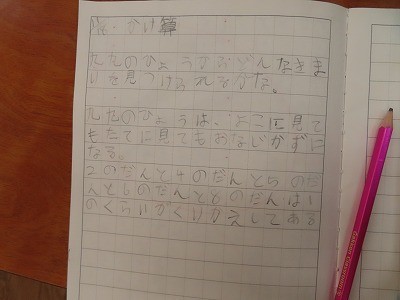 かけ算
九九のひょうはどんなきま
りを見つけられるかな。
九九のひょうは、よこに見て
もたてに見てもおなじかずに
なる。
2のだんと4のだんと5のだ
んと6のだんと8のだんは1
のくらいがくりかえしてある